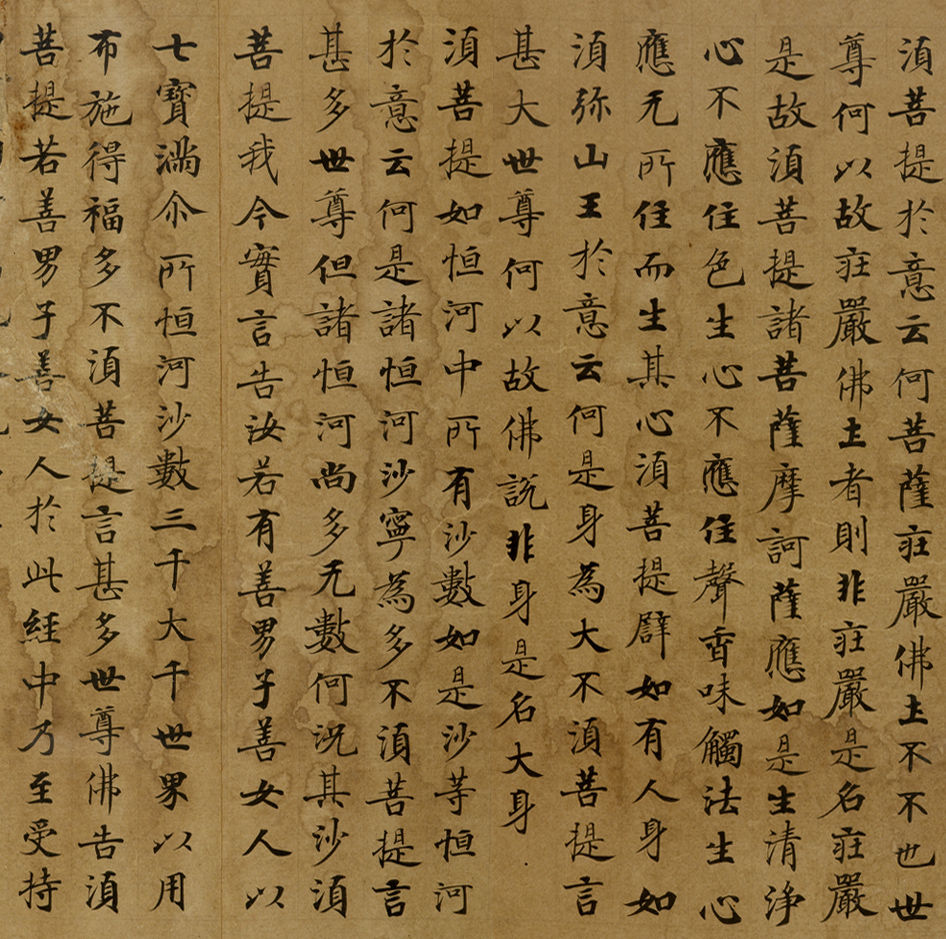 湏菩提於意云何菩薩莊嚴佛土不不也世
尊何以故莊嚴佛土者則非莊嚴是名莊嚴
是故湏菩提諸菩薩摩訶薩應如是生清淨
心不應住色生心不應住聲香味觸法生心
應无所住而生其心湏菩提譬如有人身如
湏弥山王於意云何是身為大不湏菩提言
甚大世尊何以故佛說非身是名大身
湏菩提如恒河中所有沙數如是沙等恒河
於意云何是諸恒河沙寧為多不湏菩提言
甚多世尊但諸恒河尚多无數何況其沙湏
菩提我今實言告汝若有善男子善女人以
七寶滿尒所恒河沙數三千大千世界以用
布施得福多不湏菩提言甚多世尊佛告湏
菩提若善男子善女人於此經中乃至受持